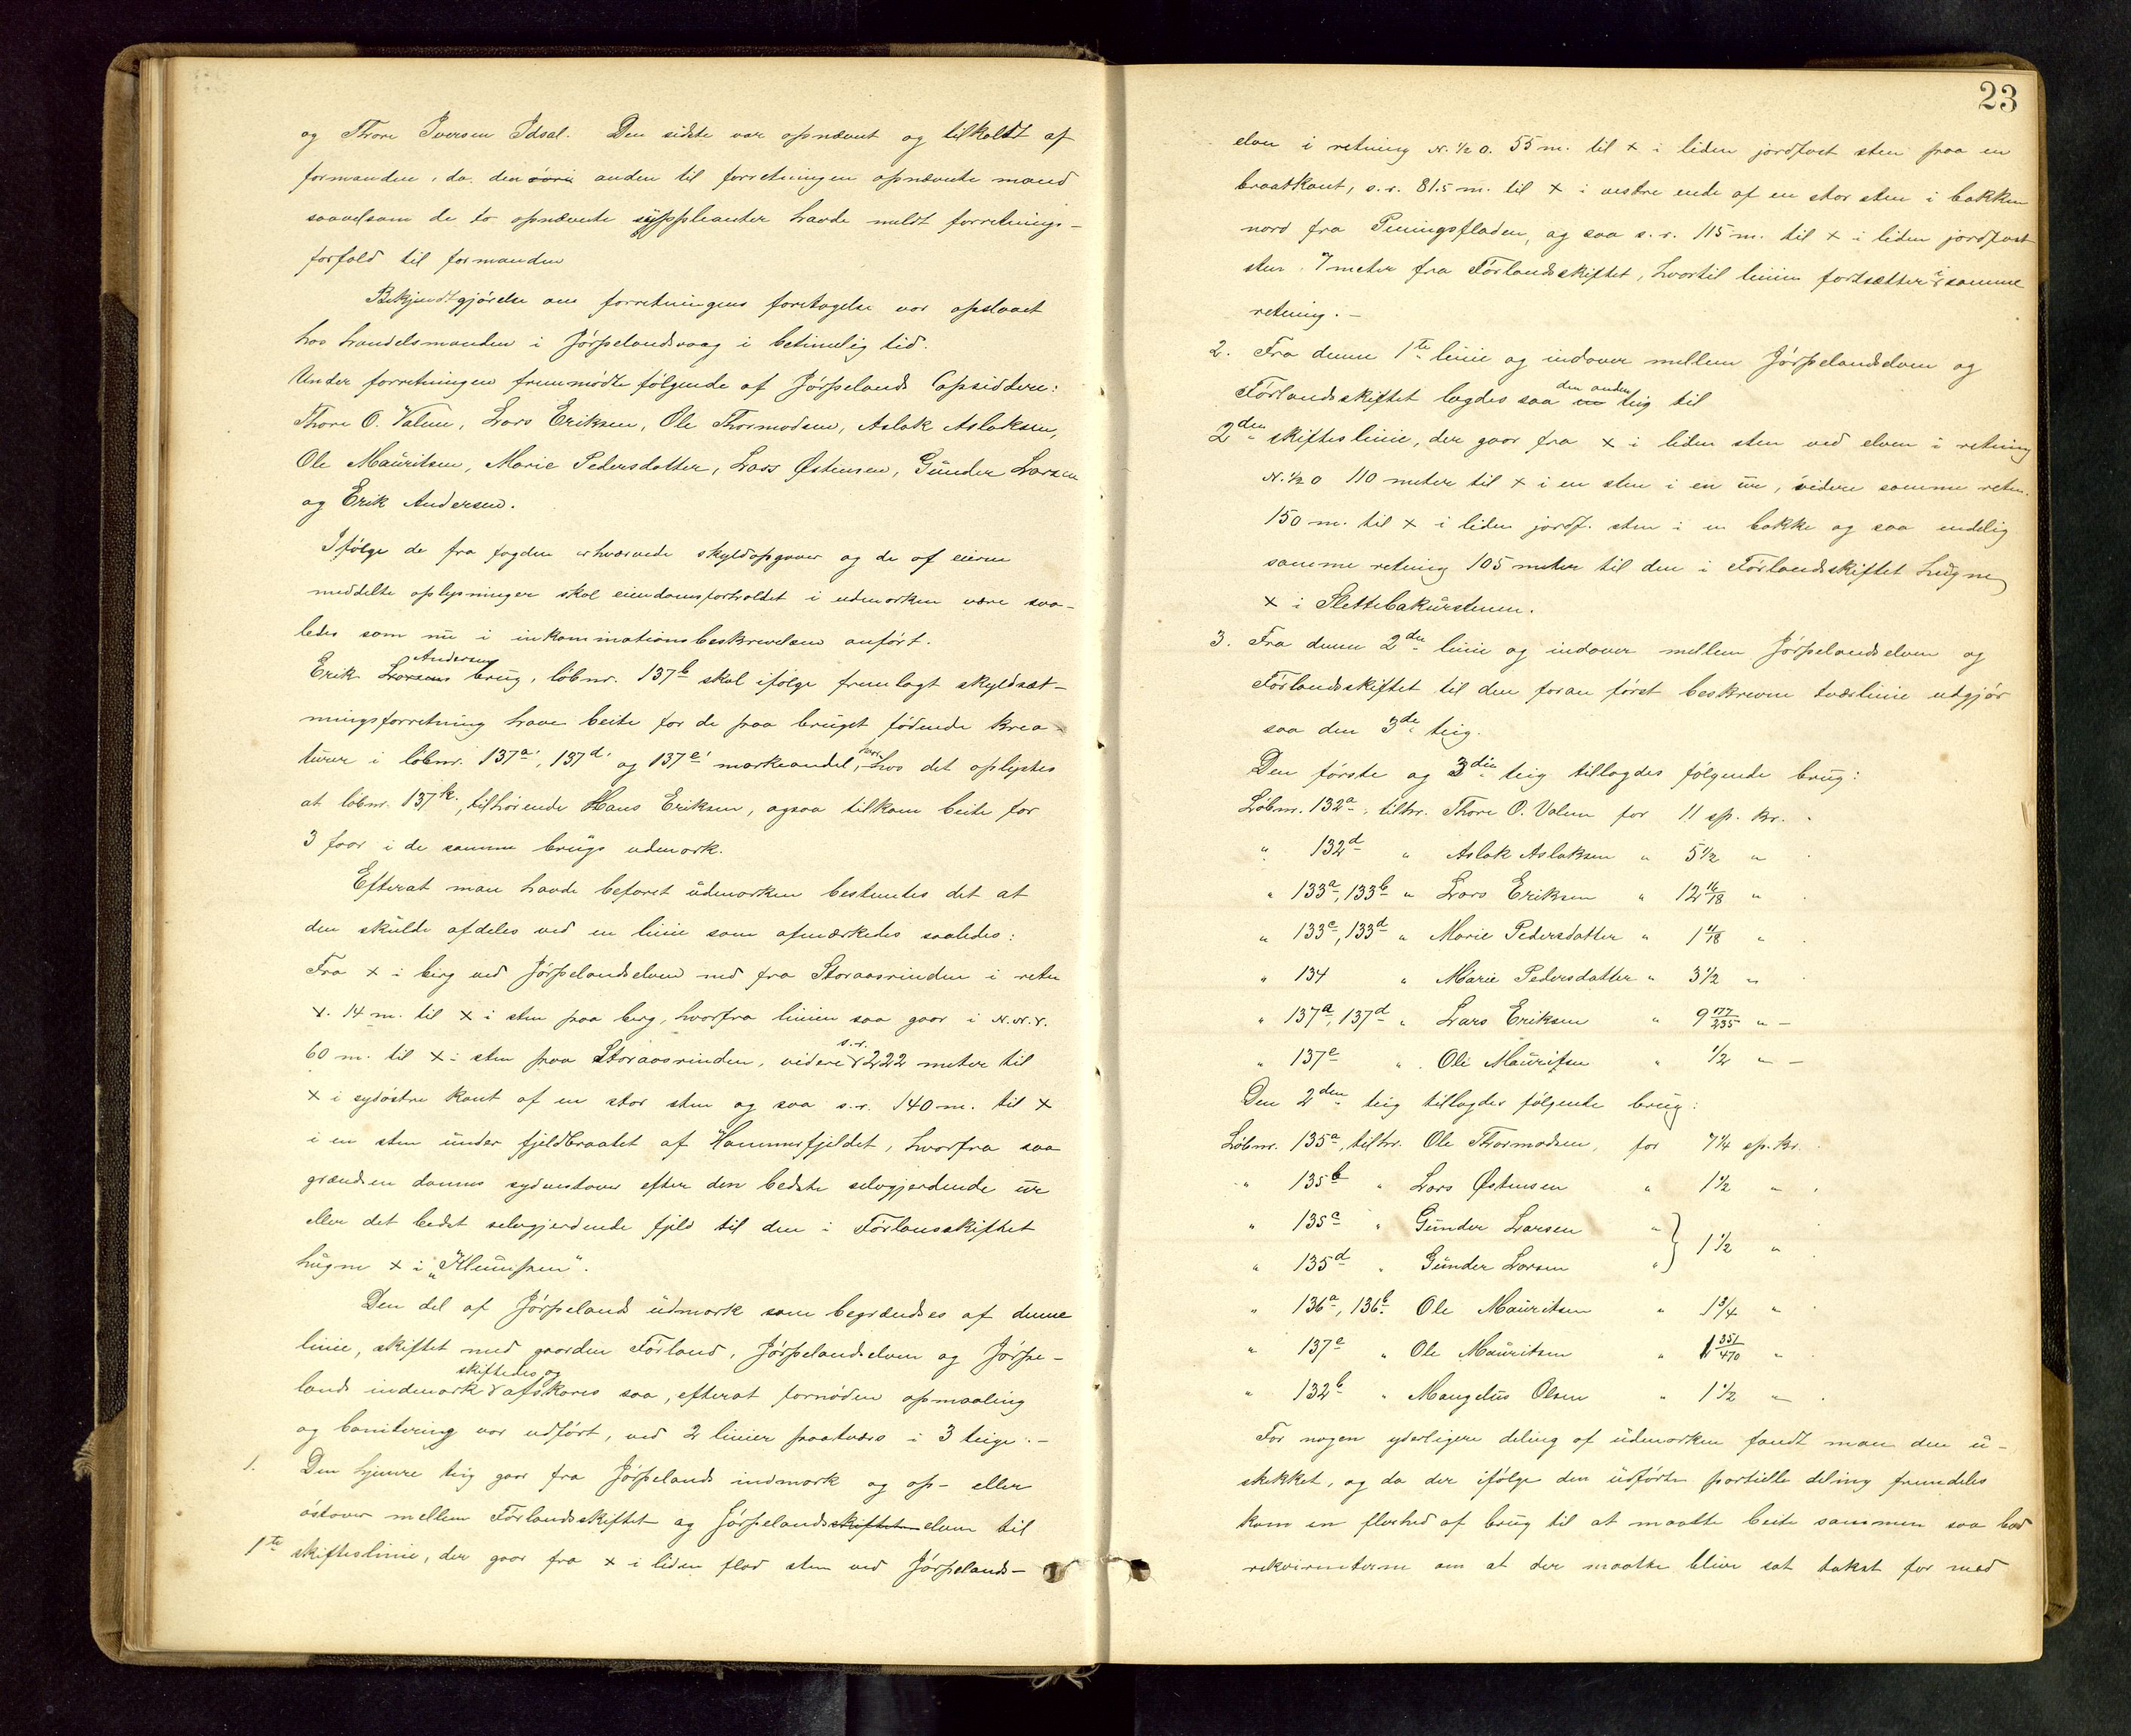 og Thore Iversen Idsal. Den sidste var opnævnt og tilkaldt af
formanden, da den anden til forretningen opnævnte mand
saavelsom de to opnævnte suppleanter havde meldt forretnings-
forfald til formanden
Bekjendtgjørelse om forretningens foretagelse var opslaaet
hos handelsmanden i Jørpelandsvaag i betimelig tid.
Under forretningen fremmødte følgende af Jørpelands opsiddere:
Thore O. Valem, Lars Eriksen, Ole Thormodsen, Aslak Aslaksen,
Ole Mauritsen, Marie Pedersdatter, Lars Østensen, Gunder Larsen
og Erik Andersen.
Ifølge de fra fogden erhvervede skyldopgaver og de af eierne
meddelte oplysninger skal eiendomsforholdet i udmarken være saa-
ledes som nu i inkaminationsbeskrivelsen anført.
Erik Larsens Andersens brug, løbnr. 137b skal ifølge fremlagt skyldsæt-
ningsforretning have beite for de paa bruget fødende krea-
turer i løbnr. 137a, 137d og 137e markeandel, hos det oplystes
at løbnr. 137k, tilhørende Hans Eriksen, ogsaa tilkom beite for
3 faar i de samme brugs udmark.
Efterat man havde befaret udmarken bestemtes det at
den skulde afdeles ved en linie som afmærkedes saaledes:
Fra x i berg ved Jørpelandselven ned fra Storaasrinden i retn
v. 14 m. til x i sten paa berg, hvorfra linien saa gaar i N.N.V.
60 m. til x i sten paa Storaasrinden, videre s.r. 222 meter til
x i sydøstre kant af en stor sten og saa s.r. 140 m. til x
i en sten under fjeldbraatet af Hammersfjeldet, hvorfra saa
grændsen dannes sydvestover efter den bedste selvgjerdende ur
eller det bedst selvgjerdende fjeld til den i Førlandsskiftet
hugne x i "Klumpen".
Den del af Jørpelands udmark som begrændses af denne
linie, skiftet med gaarden Førland, Jørpelandselven og Jørpe-
lands indmark skiftedes og afskares saa, efterat fornøden opmaaling
og bonitering var udført, ved 2 linier paatvers i 3 teige.-
1. Den hjemre teig gaar fra Jørpelands indmark og op- eller
østover mellem Førlandsskiftet og Jørpelandsskiftet elven til
1te skifteslinie, der gaar fra x i liden flad sten ved Jørpelands-
23
elven i retning N. 1/2 O. 55 m. til x i liden jordfast sten paa en
braatkant, s.r. 81.5 m. til x i vestre ende af en stor sten i bakken
nord fra Piningsfladen, og saa s.r. 115 m. til x i liden jordfast
sten 7 meter fra Førlandsskiftet, hvortil linien fortsætter i samme
retning.-
2. Fra denne 1te linie og indover mellem Jørpelandselven og
Førlandsskiftet lagdes saa en den anden teig til
2den skifteslinie, der gaar fra x i liden sten ved elven i retning
N. 1/2 O 110 meter til x i en sten i en ur, videre samme retn.
150 m. til x i liden jordf. sten i en bakke og saa endelig
samme retning 105 meter til den i Førlandsskiftet hugne
x i Slettebakurstenen.
3. Fra denne 2den linie og indover mellem Jørpelandselven og
Førlandsskiftet til den foran først beskrevne tverlinie udgjør
saa den 3de teig.
Den første og 3die teig tillagdes følgende brug:
Løbnr. 132a, tilhr. Thore O. Valem for 11 sp. kr.
" 132d " Aslak Aslaksen " 5 1/2 "
" 133a, 133b " Lars Eriksen " 12 16/18 "
" 133c, 133d " Marie Pedersdatter " 1 11/18 "
" 134 " Marie Pedersdatter " 3 1/2 "
" 137a, 137d " Lars Eriksen " 9 177/235 " -
" 137e " Ole Mauritsen " 1/2 " -
Den 2den teig tillagdes følgende brug:
Løbnr. 135a, tilhr. Ole Thormodsen, for 7 1/4 sp. kr.
" 135b " Lars Østensen " 1 1/2 "
" 135c " Gunder Larsen "
" 135d " Gunder Larsen " } 1 1/2 "
" 136a, 136b. Ole Mauritsen " 1 3/4 "
" 137e " Ole Mauritsen " 1 351/470 "
" 132b " Mangelus Olsen " 1 1/2 "
For nogen yderligere deling af udmarken fandt man den u-
skikket, og da der ifølge den udførte partielle deling fremdeles
kom en flerhed af brug til at maatte beite sammen saa bad
rekvirenterne om at der maatte blive sat takst for med